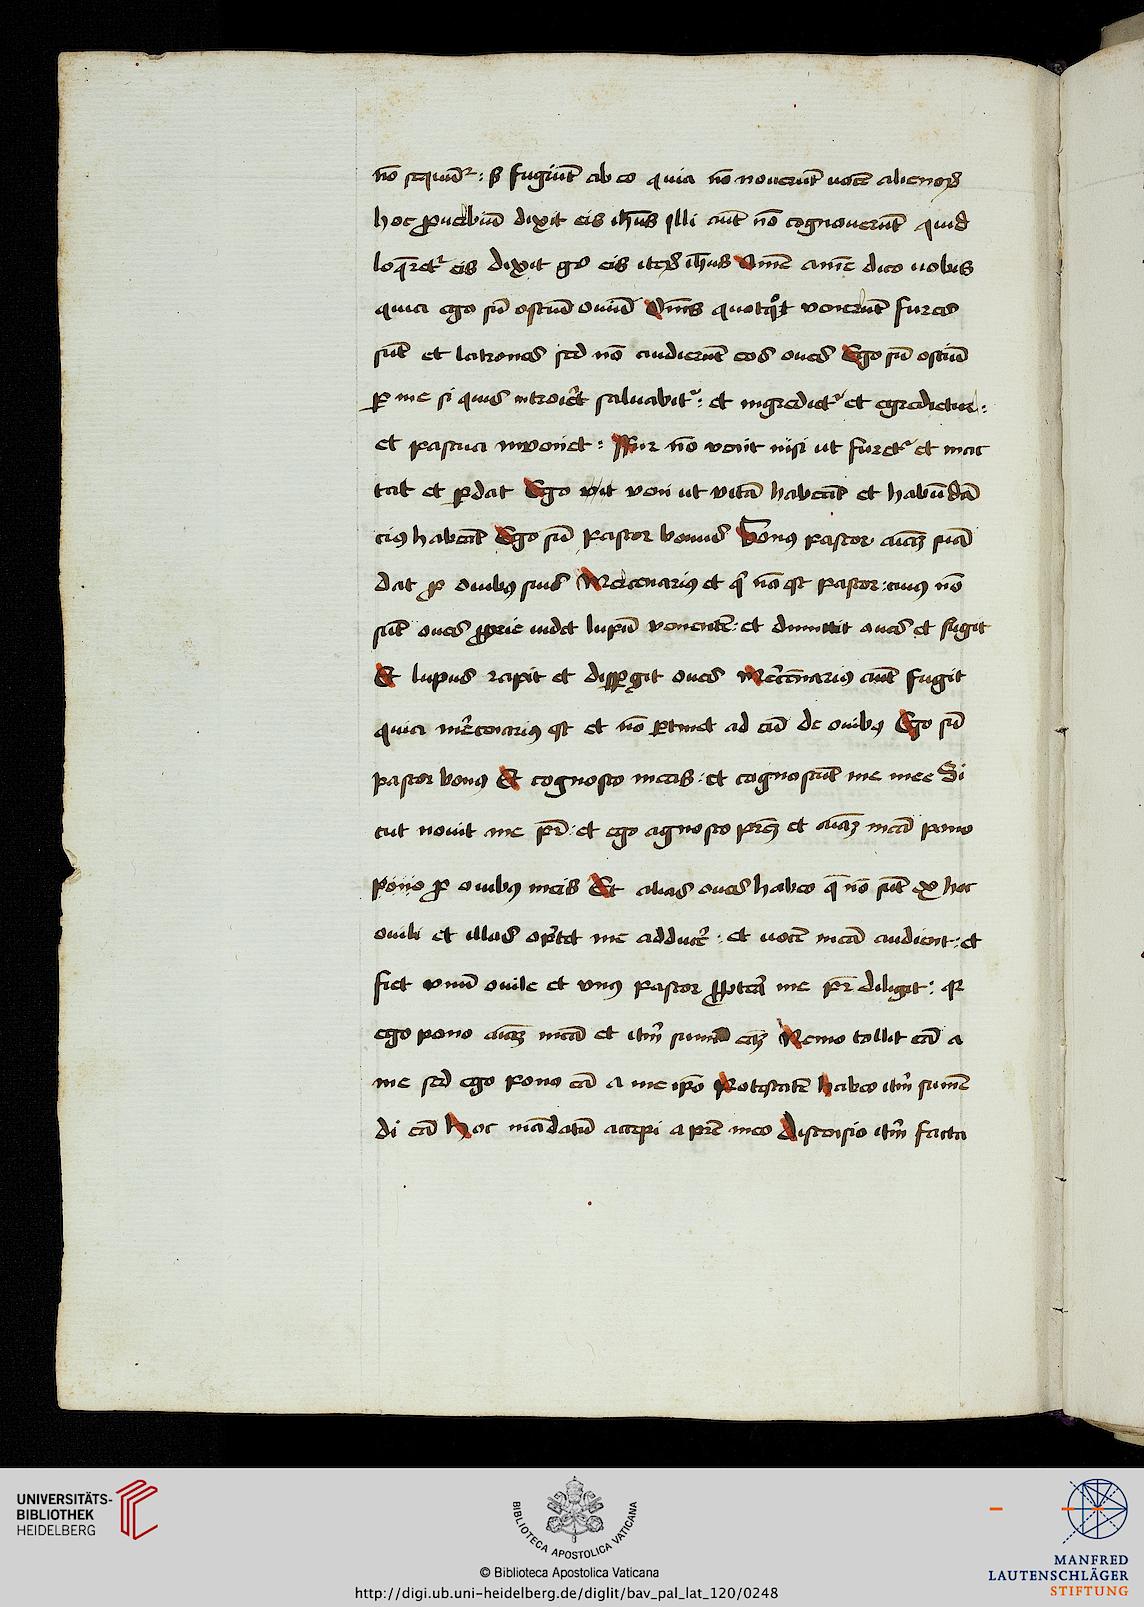 nō sequūtʳ : sꝫ fugiūt ab eo quia nō noverūt vocē alienoꝝ
hoc ꝓverbiū dixit eis ihūs Illi aūt nō cognoverūt quid
loq̄retʳ eis Dixit gͦ eis iteꝝ ihūs Amē amē dico vobis
quia ego sū ostiū oviū Om̄s quotqͦt venerūt fures
sūt et latrones sed nō audierūt eos oves Ego sū ostiū
ꝑ me si quis introiēt salvabitʳ : et ingredietʳ et egredietur :
et pascua inveniet : Fur nō venit nisi ut furetʳ et mac
tat et ꝑdat Ego vit veni ut vitā habeāt et habūdā
ciꝰ habeāt Ego sū pastor bonus Bonꝰ pastor aīaꝫ suā
dat ꝓ ovibꝰ suis Mercenariꝰ et qͥ nō est pastor : cuiꝰ nō
sūt oves ꝓprie videt lupū venientē : et dimittit oves et fugit
Et lupus rapit et disꝑgit oves Mercēnariꝰ aūt fugit
quia mercenariꝰ est et nō ꝑtinet ad eū de ovibꝰ Ego sū
pastor bonꝰ Et cognosco meas : et cognoscūt me mee Si
cut novit me pr̄ : et ego agnosco prēꝫ et aīaꝫ meā pono
pono ꝓ ovibꝰ meis Et alias oves habeo q̄ nō sūt ex hoc
ovili et illas oꝑtet me adducē : et vocē meā audient : et
fiet vnū ovile et vnꝰ pastor ꝓpterea me pr̄ diligit : qꝛ
ego pono aīaꝫ meā et itm̄ sumā eaꝫ Nemo tollit eā a
me sed ego pono eā a me ip̄o Potestatē habeo itm̄ sumē
di eā Hoc mādatū accepi a prē meo Discensio itm̄ facta
UNIVERSITÄTS-
BIBLIOTHEK
HEIDELBERG
BIBLIOTECA APOSTOLICA VATICANA
© Biblioteca Apostolica Vaticana
http://digi.ub.uni-heidelberg.de/diglit/bav_pal_lat_120/0248
MANFRED
LAUTENSCHLÄGER
STIFTUNG